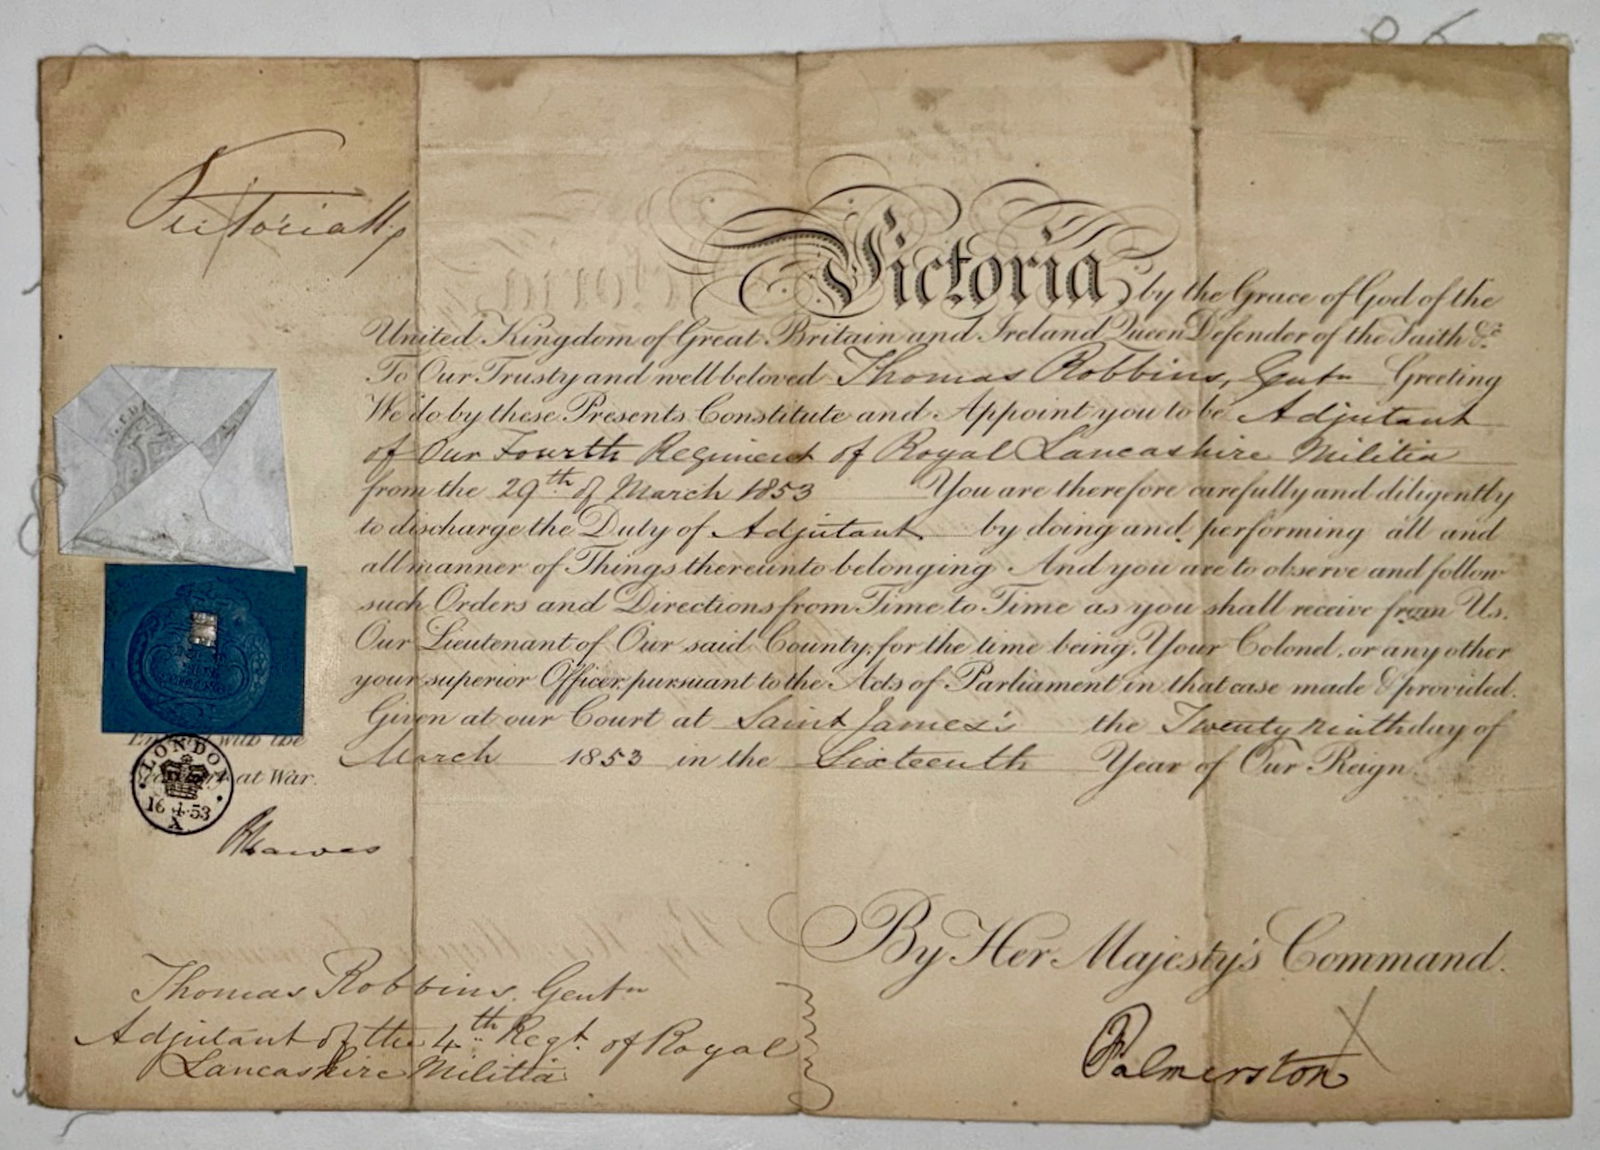 Victoria R
Victoria by the Grace of God of the
United Kingdom of Great Britain and Ireland Queen Defender of the Faith &c.
To Our Trusty and well beloved Thomas Robbins, Gentn Greeting
We do by these Presents Constitute and Appoint you to be Adjutant
of Our Fourth Regiment of Royal Lancashire Militia
from the 29th of March 1853 You are therefore carefully and diligently
to discharge the Duty of Adjutant by doing and performing all and
all manner of Things thereunto belonging And you are to observe and follow
such Orders and Directions from Time to Time as you shall receive from Us.
Our Lieutenant of Our said County, for the time being, Your Colonel, or any other
your superior Officer, pursuant to the Acts of Parliament in that case made & provided.
Given at our Court at Saint James's the Twenty ninth day of
March 1853 in the Sixteenth Year of Our Reign
with the
at War.
LONDON
16 4 53
A
BHawes
By Her Majesty's Command.
Palmerston
Thomas Robbins, Gentn
Adjutant of the 4th Regt. of Royal
Lancashire Militia